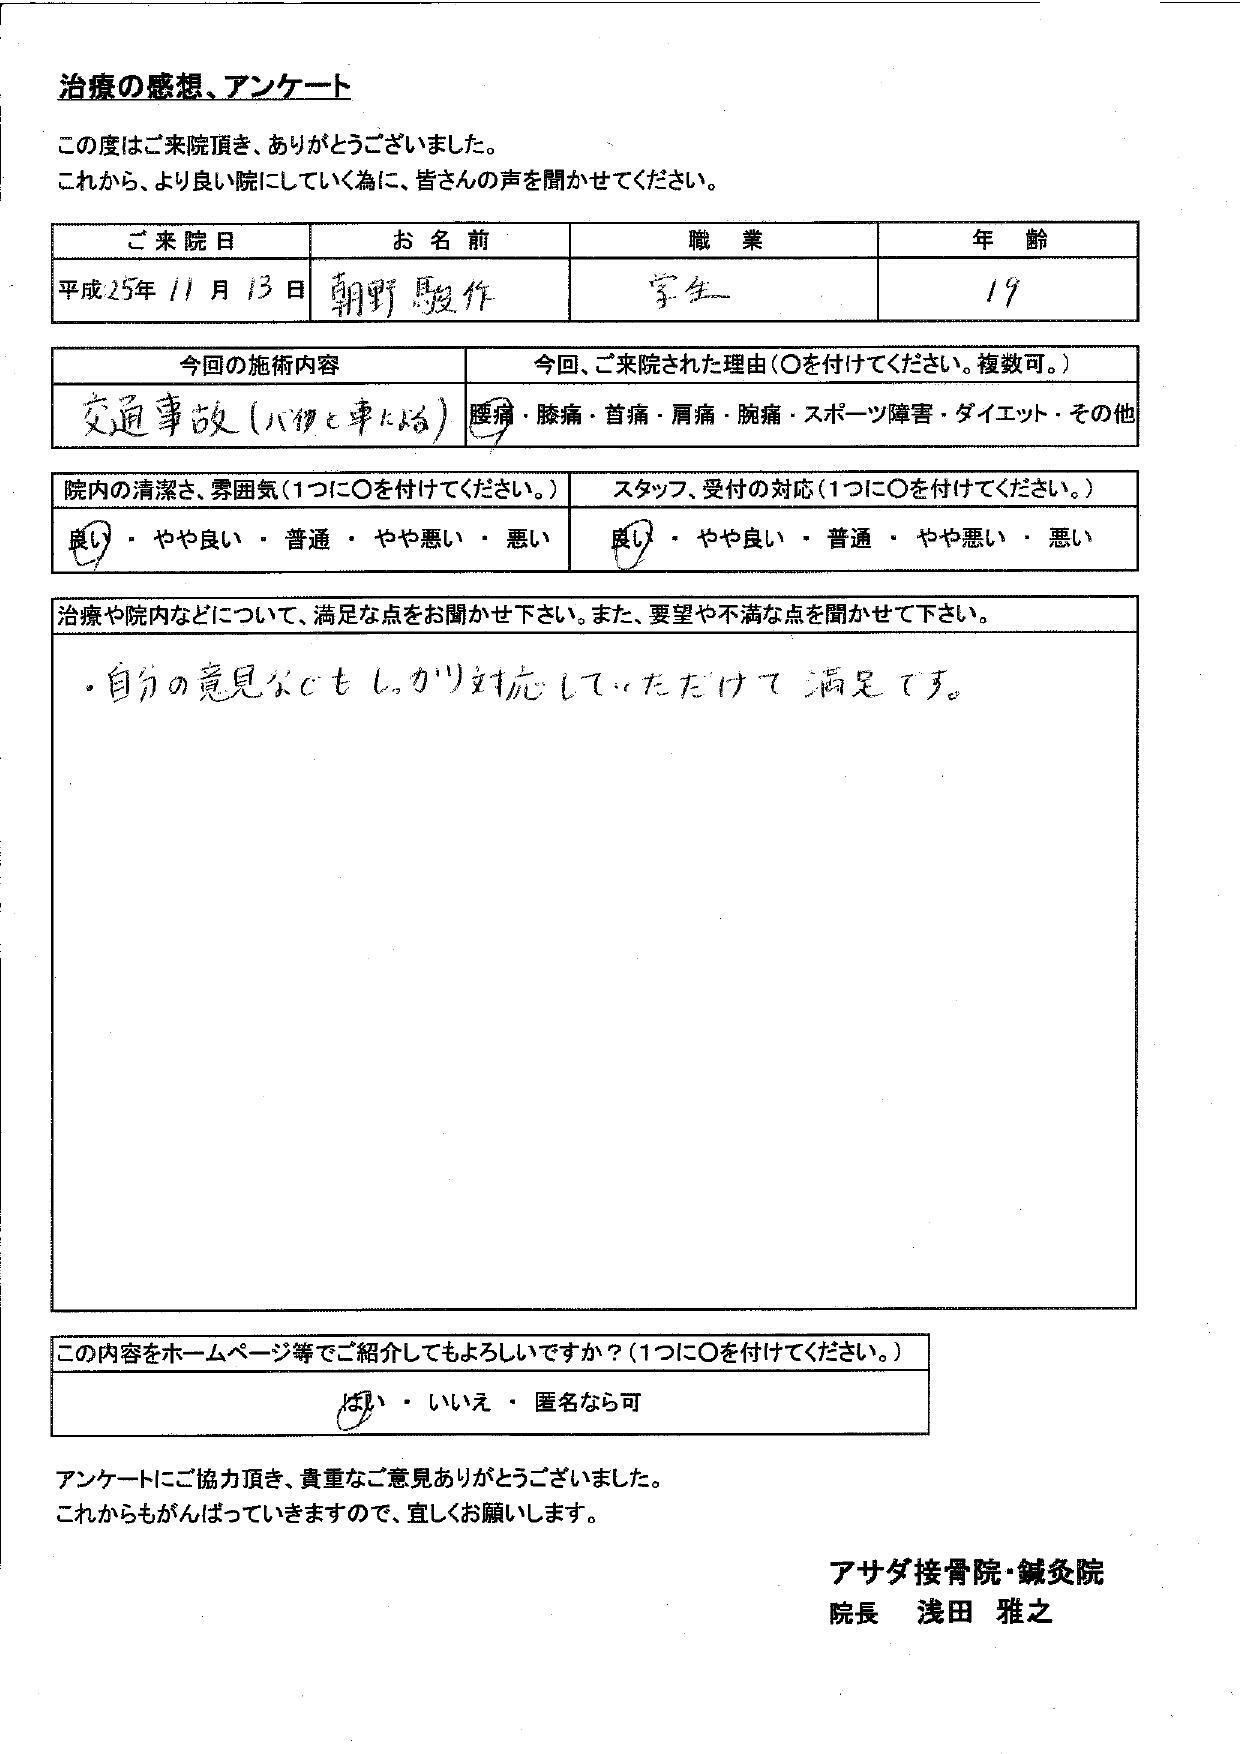 治療の感想、アンケート
この度はご来院頂き、ありがとうございました。
これから、より良い院にしていく為に、皆さんの声を聞かせてください。
ご来院日 お名前 職業 年齢
平成25年 11月 13日 朝野 駿作 学生 19
今回の施術内容 今回、ご来院された理由(○を付けてください。複数可。)
交通事故( と車による) 腰痛・膝痛・首痛・肩痛・腕痛・スポーツ障害・ダイエット・その他
院内の清潔さ、雰囲気(1つに○を付けてください。) スタッフ、受付の対応(1つに○を付けてください。)
良い ・ やや良い ・ 普通 ・ やや悪い ・ 悪い 良い ・ やや良い ・ 普通 ・ やや悪い ・ 悪い
治療や院内などについて、満足な点をお聞かせ下さい。また、要望や不満な点を聞かせて下さい。
・自分の意見 しっかり対応していただけて満足です。
この内容をホームページ等でご紹介してもよろしいですか?(1つに○を付けてください。)
はい ・ いいえ ・ 匿名なら可
アンケートにご協力頂き、貴重なご意見ありがとうございました。
これからもがんばっていきますので、宜しくお願いします。
アサダ接骨院・鍼灸院
院長 浅田 雅之